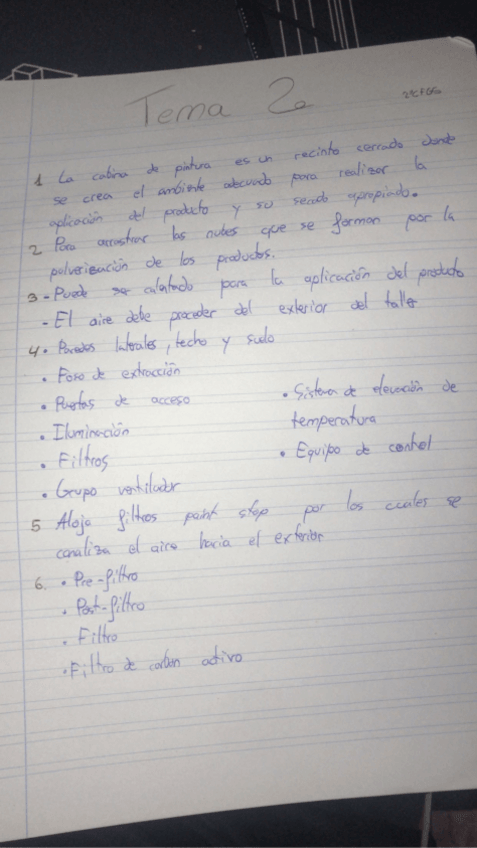 Tema 2
1 La cabina de pintura es un recinto cerrado donde
se crea el ambiente adecuado para realizar la
aplicación del producto y su secado apropiado.
2 Para arrastrar las nubes que se forman por la
pulverización de los productos.
3 - Puede ser calentado para la aplicación del producto
- El aire debe proceder del exterior del taller
4. Paredes laterales, techo y suelo
• Foso de extracción
• Puertas de acceso
• Iluminación
• Filtros
• Grupo ventilador
• Sistema de elevación de
temperatura
• Equipo de control
5 Aloja filtros paint stop por los cuales se
canaliza el aire hacia el exterior
6. • Pre-filtro
• Post-filtro
• Filtro
• Filtro de carbon activo